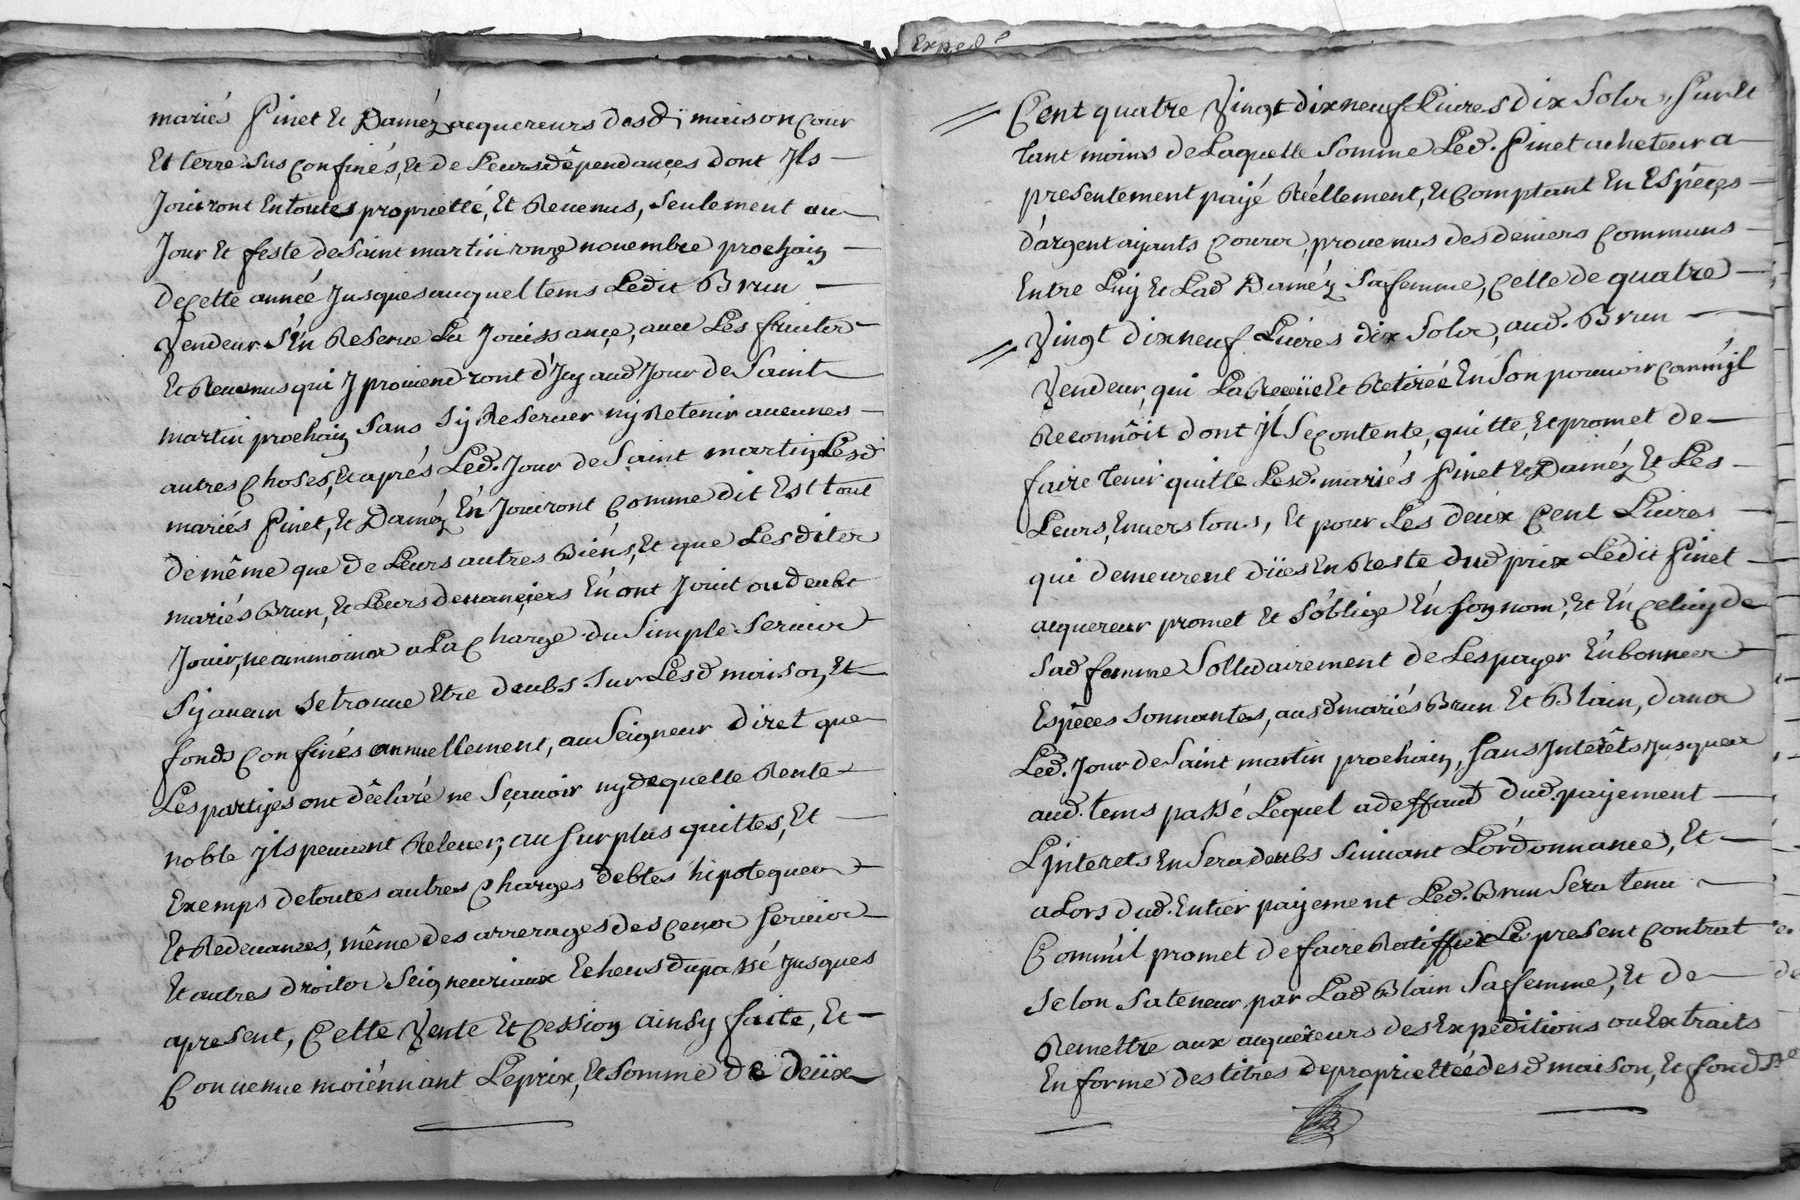 mariés Pinet Et Daméz acquereurs desd maison Cour
Et terre sus Confinés, Et de Leurs dêpendances dont Jls
Joüiront En toutes proprietté, Et Revenus, Seulement au
Jour Et feste de Saint martin onze novembre prochain
de Cette année Jusques auquel tems Ledit Brun
Vendeur S'En Reserve La Jouissance, avec Les fruits
Et Revenus qui y proviendront d'Jcy aud Jour de Saint
martin prochain Sans S'y Reserver ny Retenir aucunes
autres Choses, Et aprés Led. Jour de Saint martin Lesd
mariés Pinet, Et Daméz En Joüiront Comme dit Est tout
de même que de Leurs autres Biéns, Et que Lesdits
mariés Brun, Et Leurs devanciers En ont Jouit ou deubt
Jouir, neammoins a La Charge du Simple Service
Sy aucun Se trouve Etre deubs Sur Lesd maison, Et
fonds Confinés annuellement, au Seigneur diret que
Les partyes ont dêclaré ne Sçavoir ny de quelle Rente
noble Jls peuvent Relever, au Surplus quittes, Et
Exemps de toutes autres Charges debtes hipoteques
Et Redevances, même des arrerages des Cens Service
Et autres droits Seigneuriaux Echeus du passé Jusques
apresent, Cette Vente Et Cession ainsy faite, Et
Convenue moiénnant Le prix, Et Somme de deüx
Exped.
Cent quatre Vingt dix neuf Livres dix Sols, Sur Et
tant moins de Laquelle Somme Led. Pinet acheteur a
presentement payé Réellement, Et Comptant En Espéces
d'argent ayants Cours, provenus des deniers Communs
Entre Luy Et Lad Daméz Sa femme, Celle de quatre
Vingt dix neuf Livres dix Sols, aud. Brun
Vendeur, qui La Receüe Et Retirée En Son pouvoir Comm'jl
Reconnôit dont Jl Se Contente, quitte, Et promet de
faire tenir quitte Lesd. mariés Pinet Et Daméz Et Les
Leurs, Envers tous, Et pour Les deüx Cent Livres
qui demeurent dües En Reste dud prix Ledit Pinet
acquereur promet Et S'oblige En Son nom, Et En Celuy de
Sad femme Sollidairement de Les payer En bonnes
Espéces Sonnantes, ausd mariés Brun Et Blain, dans
Led. Jour de Saint martin prochain, Sans Jnterêts Jusques
aud. tems passé Lequel a deffaud dud. payement
L'jnterets En Sera deubs Suivant L'ordonnance, Et
a Lors dud. Entier payement Led. Brun Sera tenu
Comm'il promet de faire Ratiffier Le present Contrat
Selon Sa teneur par Lad Blain Sa femme, Et de
Remettre aux acquereurs des Expeditions ou Extraits
En forme des titres de propriettée desd maison, Et fonds